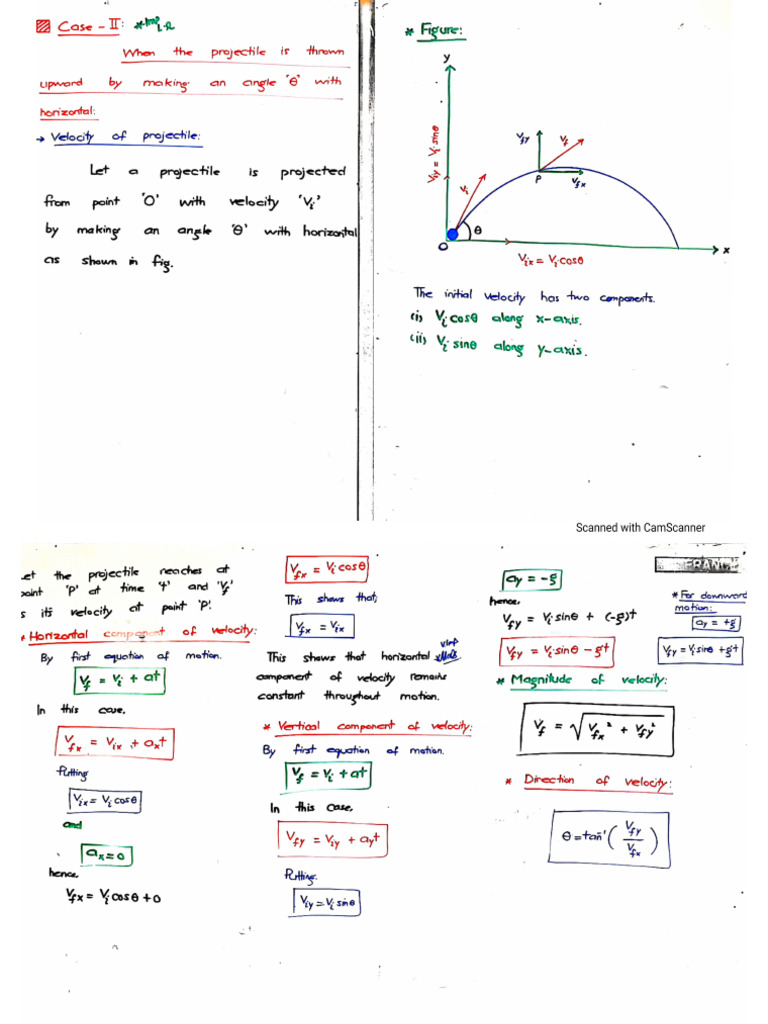 Case - II: *Imp L.Q
When the projectile is thrown
upward by making an angle 'θ' with
horizontal:
→ Velocity of projectile:
Let a projectile is projected
from point 'O' with velocity 'Vi'
by making an angle 'θ' with horizontal
as shown in fig.
* Figure:
y
Viy = Vi sinθ
Vi
Vfy
Vf
P
Vfx
θ
O
x
Vix = Vi cosθ
The initial velocity has two components.
(i) Vi cosθ along x-axis.
(ii) Vi sinθ along y-axis.
Scanned with CamScanner
Let the projectile reaches at
point 'P' at time 't' and 'Vf'
s its velocity at point 'P'.
* Horizontal component of velocity:
By first equation of motion.
Vf = Vi + at
In this case,
Vfx = Vix + axt
Putting
Vix = Vi cosθ
and
ax = 0
hence,
Vfx = Vi cosθ + 0
Vfx = Vi cosθ
This shows that;
Vfx = Vix
This shows that horizontal
component of velocity remains
constant throughout motion.
* Vertical component of velocity:
By first equation of motion.
Vf = Vi + at
In this case,
Vfy = Viy + ayt
Putting.
Viy = Vi sinθ
ay = -g
hence,
Vfy = Vi sinθ + (-g)t
Vfy = Vi sinθ - gt
* For downward
motion:
ay = +g
Vfy = Vi sinθ + gt
* Magnitude of velocity:
Vf = √(Vfx² + Vfy²)
* Direction of velocity:
θ = tan⁻¹ (Vfy / Vfx)